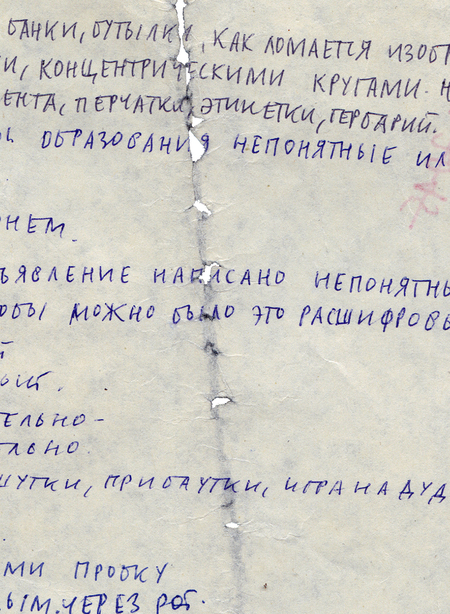 БАНКИ, БУТЫЛКИ, КАК ЛОМАЕТСЯ ИЗОБР
И, КОНЦЕНТРИЧЕСКИМИ КРУГАМИ. Н
ЕНТА, ПЕРЧАТКИ, ЭТИКЕТКИ, ГЕРБАРИЙ.
ОБРАЗОВАНИЯ НЕПОНЯТНЫЕ ИЛ
НЕМ.
ЪЯВЛЕНИЕ НАПИСАНО НЕПОНЯТНЫ
ОБЫ МОЖНО БЫЛО ЭТО РАСШИФРОВЫ
Й
ЫЙ.
ЕЛЬНО-
ЕЛЬНО.
ШУТКИ, ПРИБАУТКИ, ИГРА НА ДУД
МИ ПРОБКУ
ЫМ. ЧЕРЕЗ РОТ.